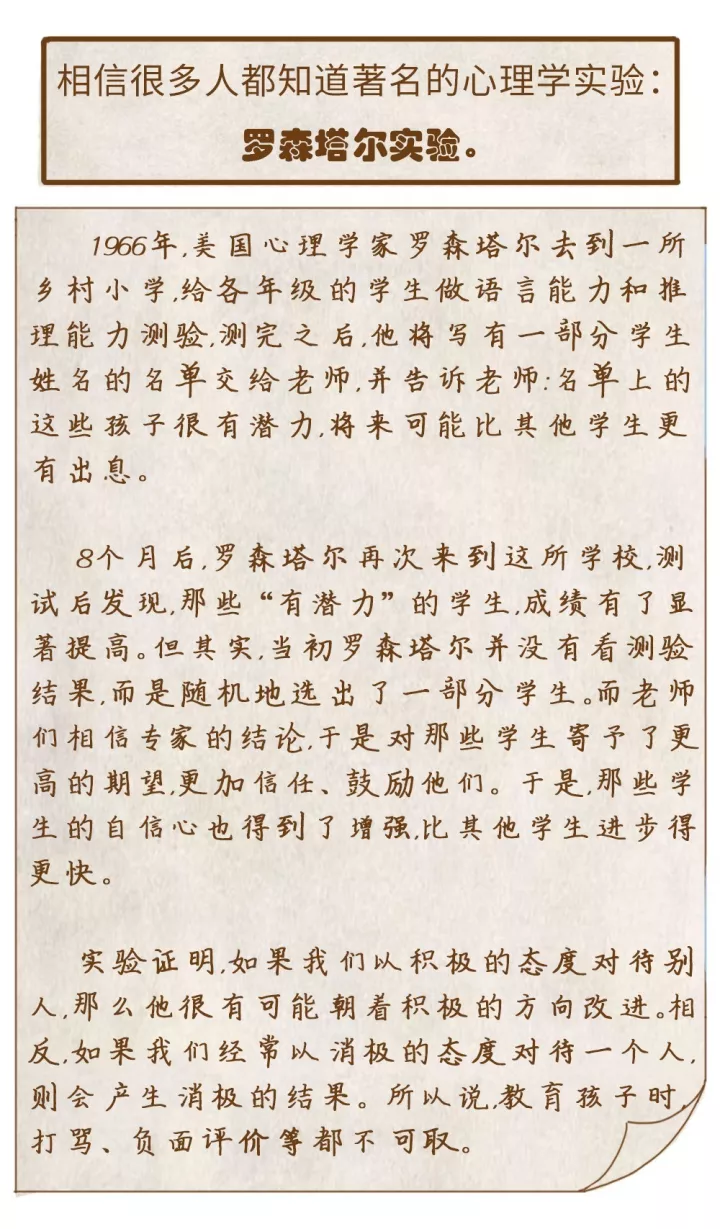 相信很多人都知道著名的心理学实验：
罗森塔尔实验。
1966年,美国心理学家罗森塔尔去到一所
乡村小学,给各年级的学生做语言能力和推
理能力测验,测完之后,他将写有一部分学生
姓名的名单交给老师,并告诉老师:名单上的
这些孩子很有潜力,将来可能比其他学生更
有出息。
8个月后,罗森塔尔再次来到这所学校,测
试后发现,那些“有潜力”的学生,成绩有了显
著提高。但其实,当初罗森塔尔并没有看测验
结果,而是随机地选出了一部分学生。而老师
们相信专家的结论,于是对那些学生寄予了更
高的期望,更加信任、鼓励他们。于是,那些学
生的自信心也得到了增强,比其他学生进步得
更快。
实验证明,如果我们以积极的态度对待别
人,那么他很有可能朝着积极的方向改进。相
反,如果我们经常以消极的态度对待一个人,
则会产生消极的结果。所以说,教育孩子时,
打骂、负面评价等都不可取。